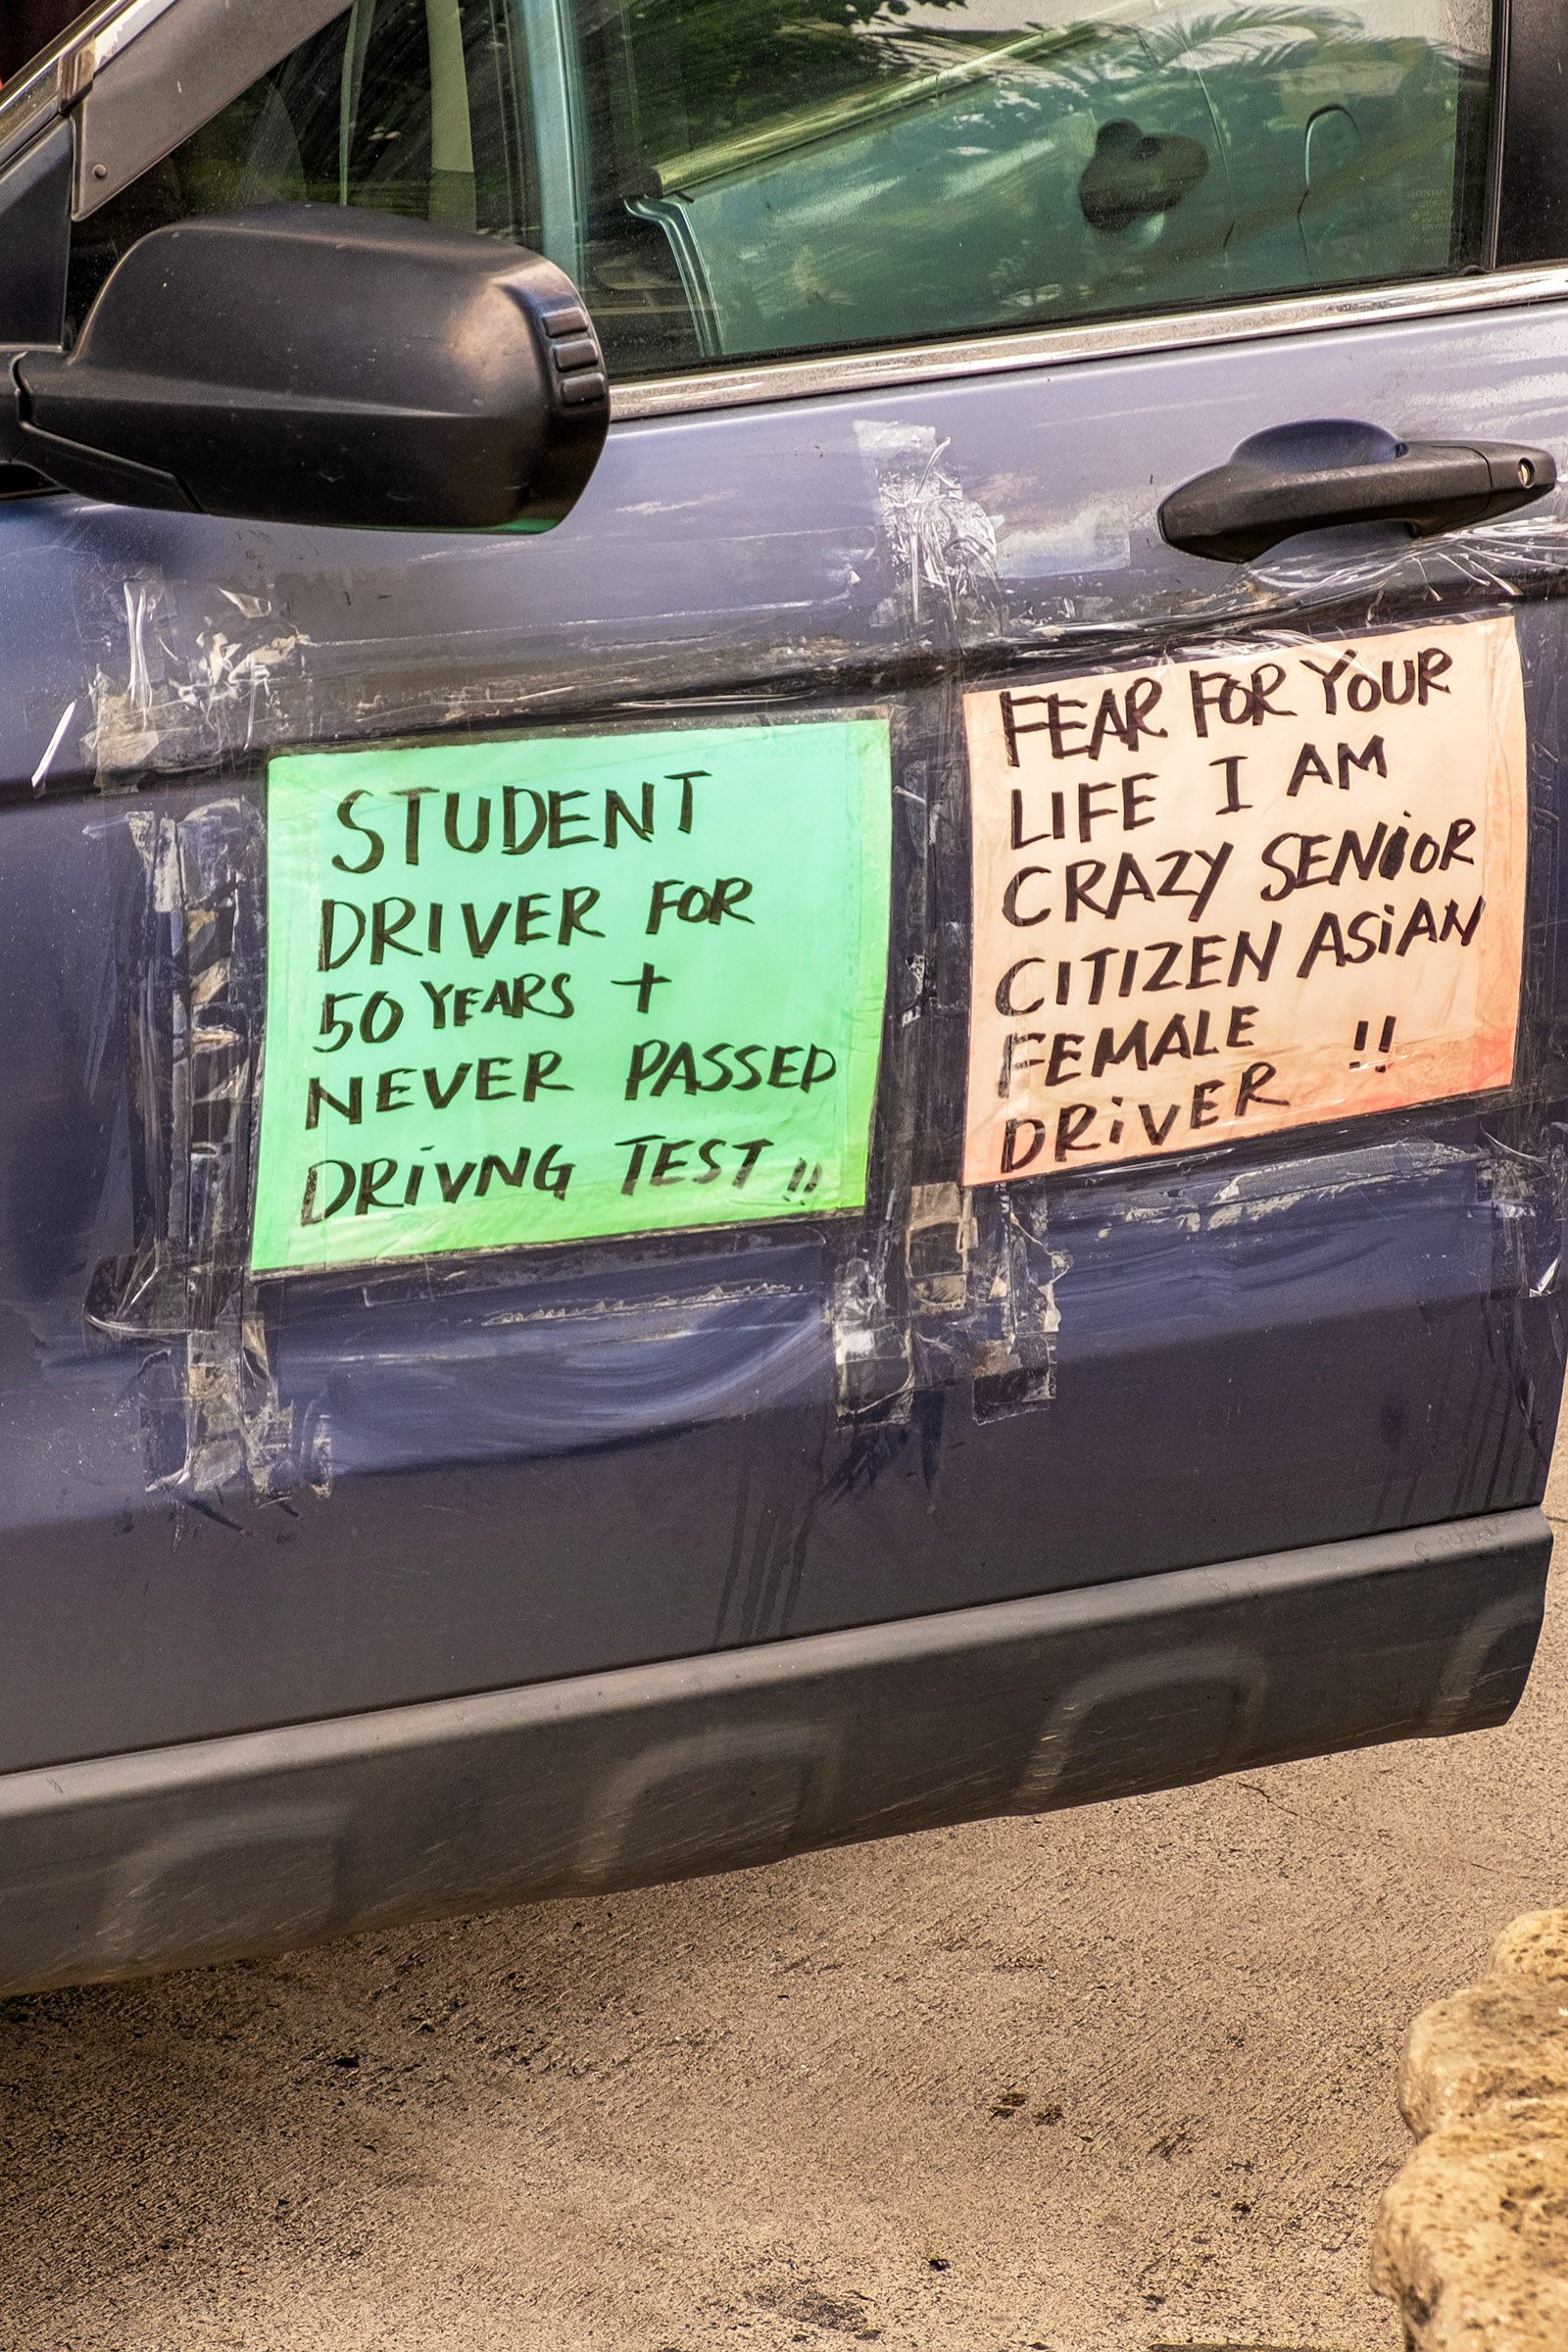 STUDENT
DRIVER FOR
50 YEARS +
NEVER PASSED
DRIVNG TEST !!
FEAR FOR YOUR
LIFE I AM
CRAZY SENiOR
CITIZEN ASiAN
FEMALE !!
DRiVER